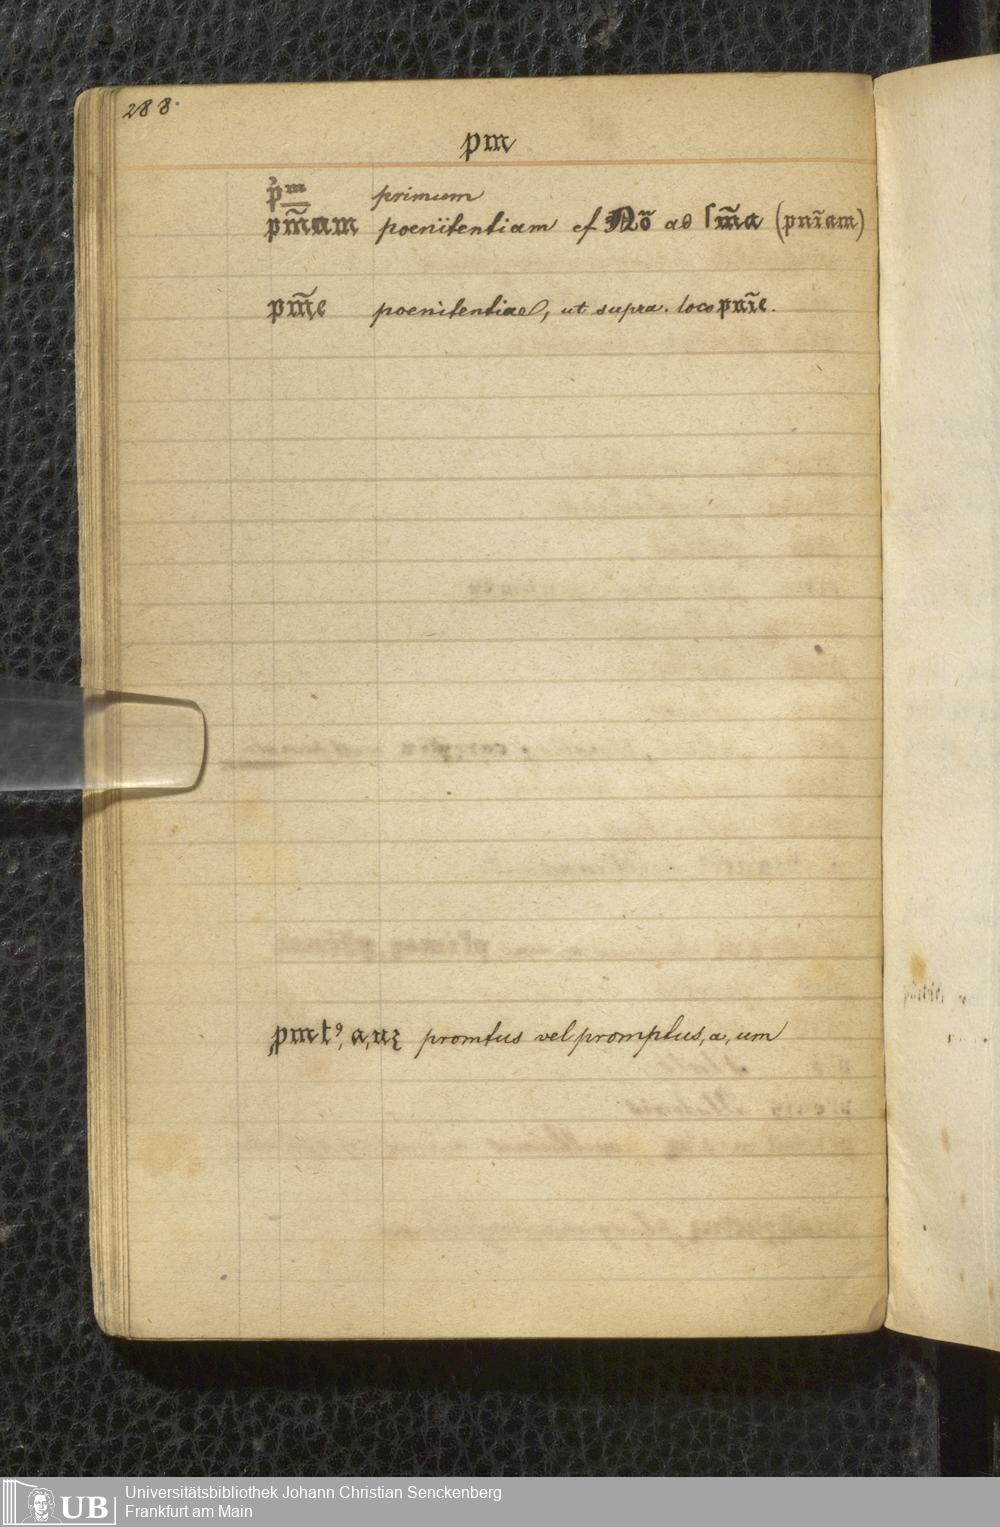 288.
pm
p̉ᵐ primum
pm̃am poenitentiam cf Nõ ad ſm̃a (pnĩam)
pm̃e poenitentiae, ut supra. loco pnĩe.
pmtꝰ, a, uꝫ promtus vel promptus, a, um
UB
Universitätsbibliothek Johann Christian Senckenberg
Frankfurt am Main